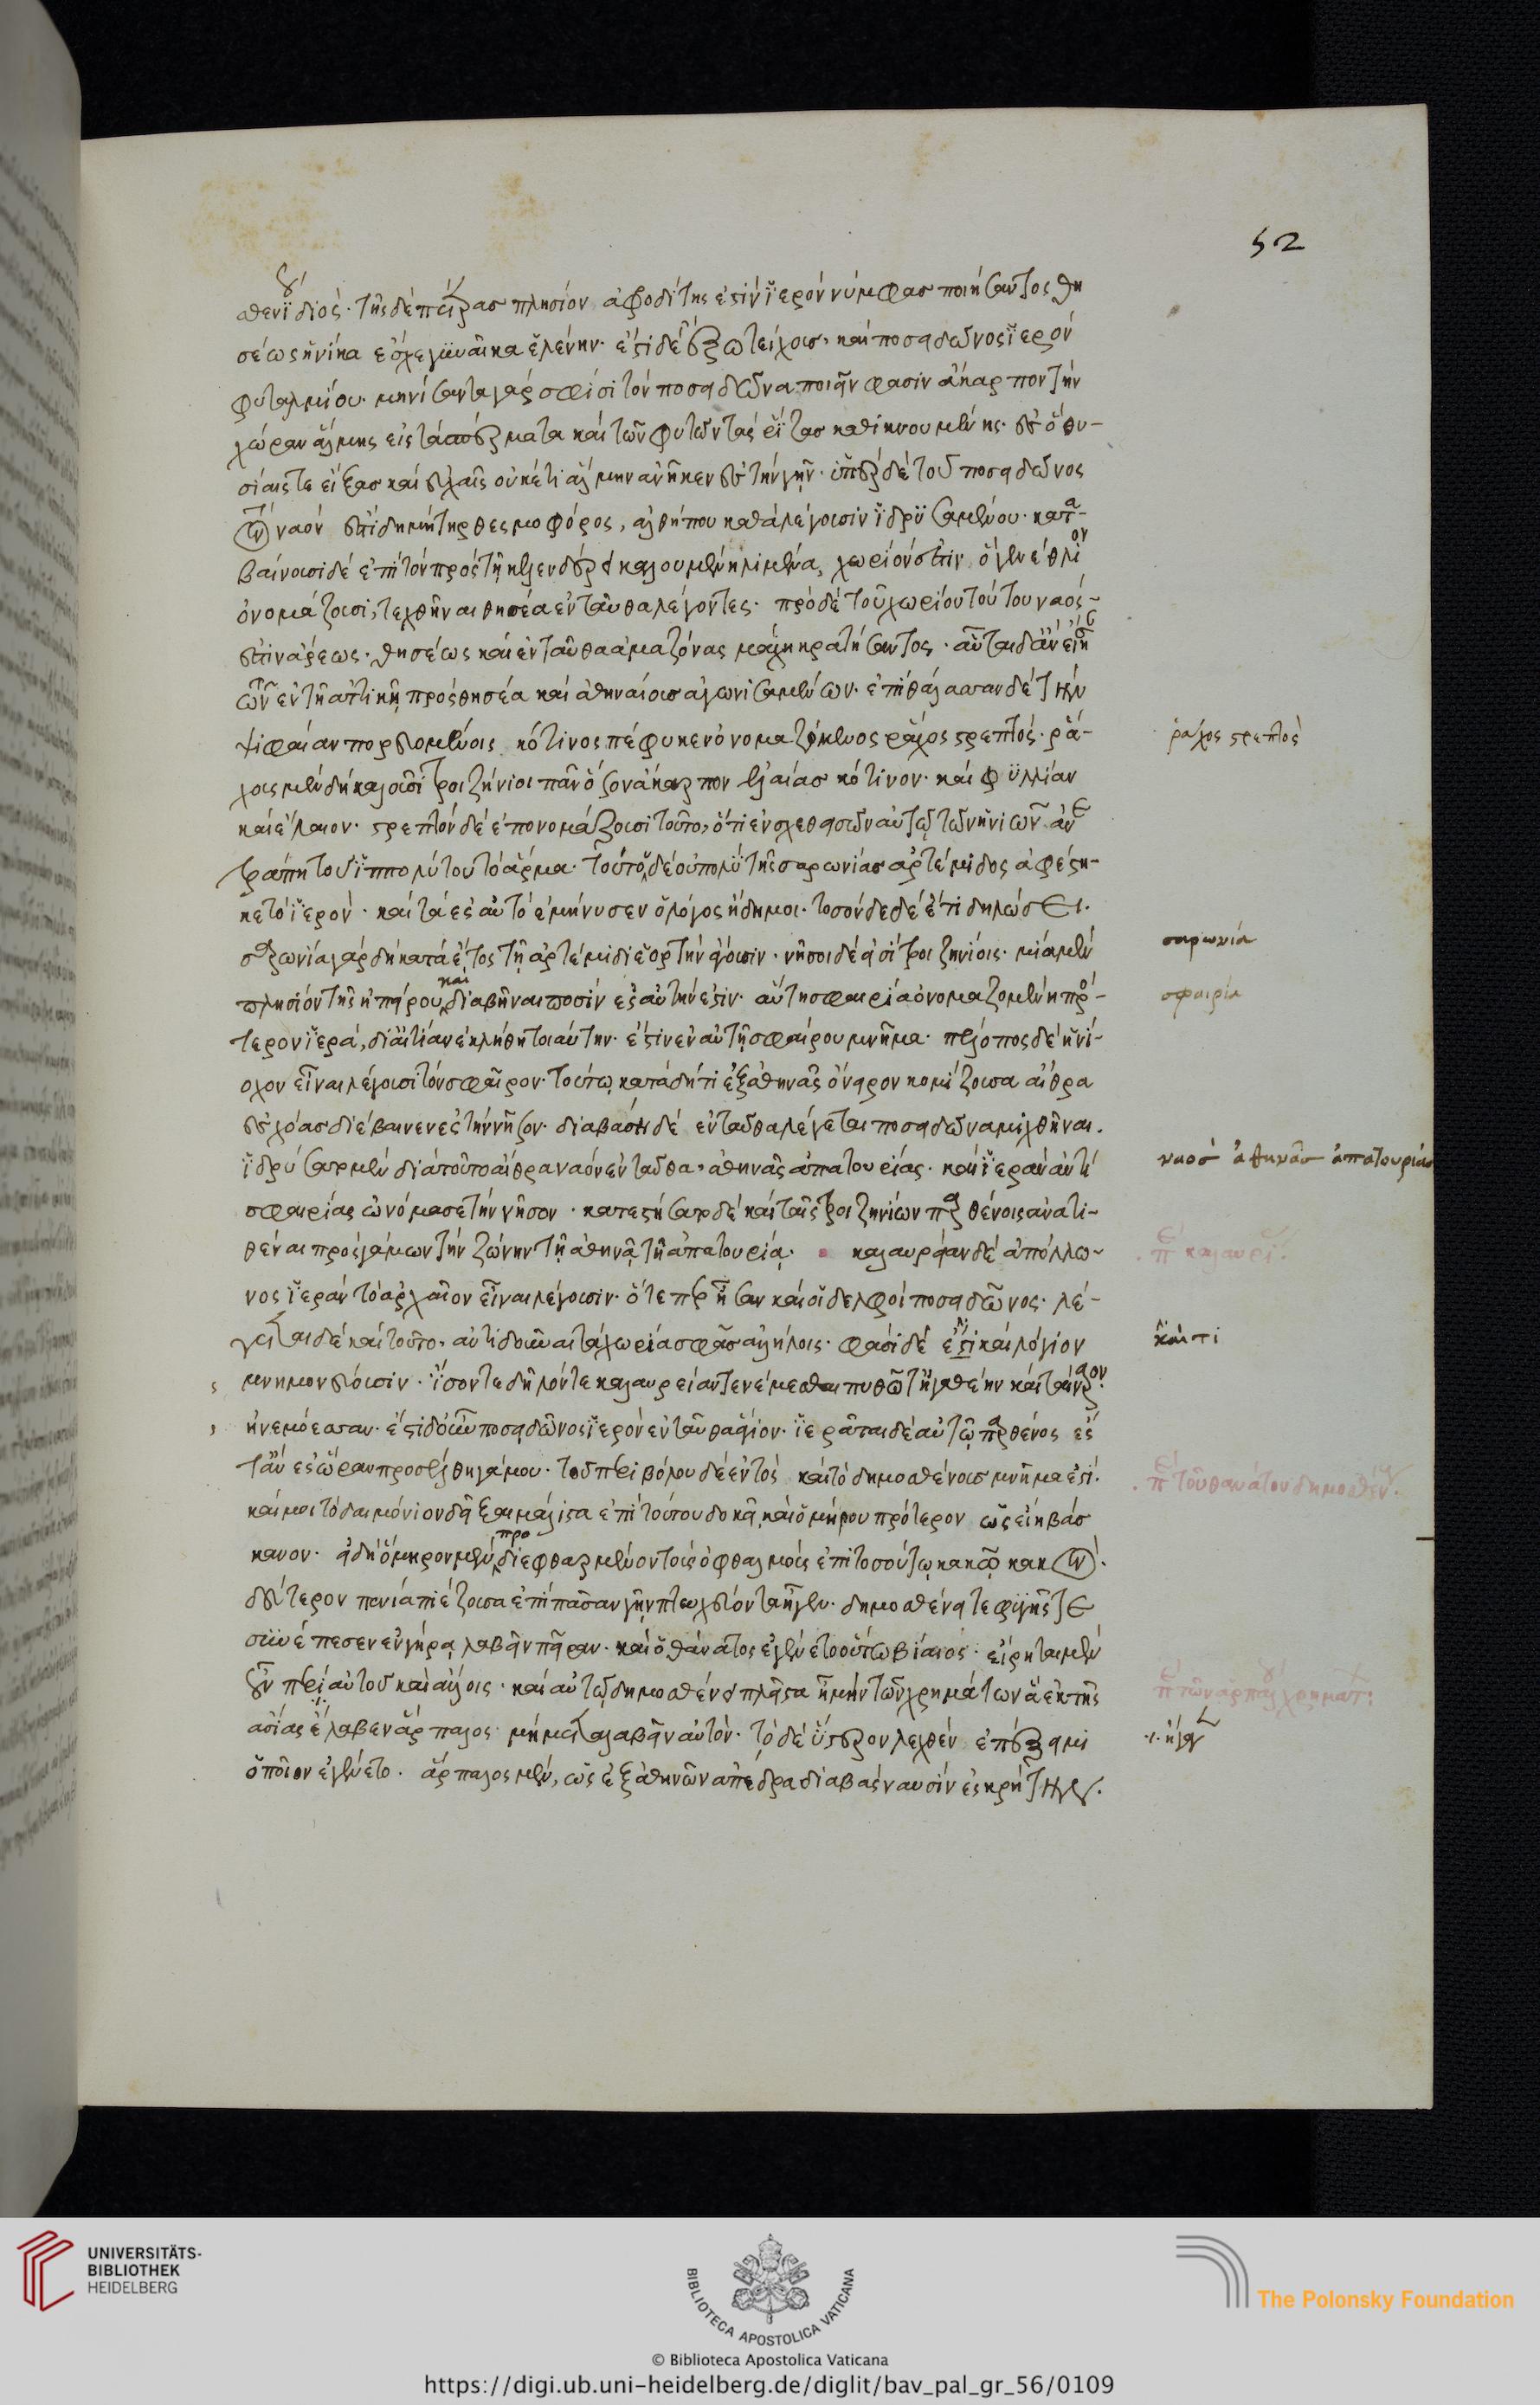 52
σθενΐου διός· τῆς δὲ πέτρας πλησίον ἀφροδίτης ἐστὶν ἱερὸν νύμφας ποιήσαντος θη
σέως ἡνίκα ἔσχε γυναῖκα ἑλένην· ἔστι δὲ ἔξω τείχους καὶ ποσειδῶνος ἱερὸν
φυταλμίου· μηνίσαντα γάρ σφισι τὸν ποσειδῶνα ποιεῖν φασιν ἄκαρπον τὴν
χώραν ἅλμης εἰς τὰ σπέρματα καὶ τῶν φυτῶν τὰς ῥίζας καθικνουμένης· ἐς ὃ θυ-
σίαις τε εἴξας καὶ εὐχαῖς οὐκέτι ἅλμην ἀνῆκεν ἐς τὴν γῆν· ὑπὲρ δὲ τοῦ ποσειδῶνος
τὸν ναόν ἐστι δημήτηρ θεσμοφόρος, ἀλθήπου καθὰ λέγουσιν ἱδρυσαμένου· κατα-
βαίνουσι δὲ ἐπὶ τὸν πρὸς τῇ κελενδέρει καλουμένῃ λιμένα, χωρίον ἐστὶν ὃ γενέθλιον
ὀνομάζουσι, τεχθῆναι θησέα ἐνταῦθα λέγοντες· πρὸ δὲ τοῦ χωρίου τούτου ναός-
ἐστιν ἄρεως· θησέως καὶ ἐνταῦθα ἀμαζόνας μάχῃ κρατήσαντος· αὗται δ' ἂν εἴησαν
τῶν ἐν τῇ ἀττικῇ πρὸς θησέα καὶ ἀθηναίους ἀγωνισαμένων· ἐπὶ θάλασσαν δὲ τὴν
ψιφαίαν πορευομένοις κότινος πέφυκεν ὀνομαζόμενος ῥάχος στρεπτός· ῥά-
χους μὲν δὴ καλοῦσι τροιζήνιοι πᾶν ὅσον ἄκαρπον ἐλαίας κότινον· καὶ φυλλίαν
καὶ ἔλαιον· στρεπτὸν δὲ ἐπονομάζουσι τοῦτο, ὅτι ἐνσχεθεισῶν αὐτῷ τῶν ἡνιῶν ἀνε
τράπη τοῦ ἱππολύτου τὸ ἅρμα· τούτου δὲ οὐ πολὺ τῆς σαρωνίας ἀρτέμιδος ἀφέστη-
κε τὸ ἱερόν· καὶ τὰ ἐς αὐτὸ ἐμήνυσεν ὁ λόγος ἤδη μοι· τοσόνδε δὲ ἔτι δηλώσει·
σαρωνία γὰρ δὴ κατὰ ἔτος τῇ ἀρτέμιδι ἑορτὴν ἄγουσιν· νῆσοι δέ εἰσι τροιζηνίοις· μία μὲν
πλησίον τῆς ἠπείρου, καὶ διαβῆναι ποσὶν ἐς αὐτὴν ἔστιν· αὕτη σφαιρία ὀνομαζομένη πρό-
τερον ἱερά, δι' αἰτίαν ἐκλήθη τοιαύτην· ἔστιν ἐν αὐτῇ σφαίρου μνῆμα· πέλοπος δὲ ἡνί-
οχον εἶναι λέγουσι τὸν σφαῖρον· τούτῳ κατὰ δή τι ἐξ ἀθηνᾶς ὄνειρον κομίζουσα αἴθρα
ἐς χοὰς διέβαινεν ἐς τὴν νῆσον· διαβάσῃ δὲ ἐνταῦθα λέγεται ποσειδῶνα μιχθῆναι.
ἱδρύσατο μὲν διὰ τοῦτο αἴθρα ναὸν ἐνταῦθα, ἀθηνᾶς ἀπατουρίας· καὶ ἱερὰν ἀντὶ
σφαιρίας ὠνόμασε τὴν νῆσον· κατεστήσατο δὲ καὶ ταῖς τροιζηνίων παρθένοις ἀνατι-
θέναι πρὸ γάμων τὴν ζώνην τῇ ἀθηνᾷ τῇ ἀπατουρίᾳ· καλαυρείαν δὲ ἀπόλλω-
νος ἱερὰν τὸ ἀρχαῖον εἶναι λέγουσιν· ὅτε περ ἦσαν καὶ οἱ δελφοὶ ποσειδῶνος· λέ-
γεται δὲ καὶ τοῦτο, ἀντιδοῦναι τὰ χωρία σφᾶς ἀλλήλοις· φασὶ δὲ ἔτι καὶ λόγιον
μνημονεύουσιν· ἶσόν τε δῆλόν τε καλαυρείαν τε νέμεσθαι πυθώ τ' ἠγαθέην καὶ ταίναρον
ἠνεμόεσσαν· ἔστι δ' οὖν ποσειδῶνος ἱερὸν ἐνταῦθα ἅγιον· ἱερᾶται δὲ αὐτῷ παρθένος ἐς
τ' ἂν ἐς ὥραν προσέλθῃ γάμου· τοῦ περιβόλου δὲ ἐντὸς καὶ τὸ δημοσθένους μνῆμά ἐστι.
καί μοι τὸ δαιμόνιον δεῖξαι μάλιστα ἐπὶ τούτου δοκεῖ, καὶ ὁμήρου πρότερον ὡς εἴη βάσ
κανον· εἰ δὴ ὅμηρον μὲν προδιεφθαρμένον τοὺς ὀφθαλμοὺς ἐπὶ τοσούτῳ κακῷ κακὸν·
δεύτερον πενία πιέζουσα ἐπὶ πᾶσαν γῆν πτωχεύοντα ἦγεν· δημοσθένει τε φυγῆς τε
συνέπεσεν ἐν γήρᾳ λαβεῖν πεῖραν· καὶ ὁ θάνατος ἐγένετο οὕτω βίαιος· εἴρηται μὲν
οὖν περὶ αὐτοῦ καὶ ἄλλοις· καὶ αὐτῷ δημοσθένει πλεῖστα ἦ μὴν τῶν χρημάτων ἃ ἐκ τῆς
ἀσίας ἔλαβεν ἅρπαλος· μὴ μεταλαβεῖν αὐτόν· τὸ δὲ ὕστερον λεχθὲν ἐπέξειμι
ὁποῖον ἐγένετο· ἅρπαλος μέν, ὡς ἐξ ἀθηνῶν ἀπέδρα διαβὰς ναυσὶν ἐς κρήτην.
ῥάχος στρεπτὸς
σαρωνία
σφαιρία
ναὸσ ἀθηνᾶσ ἀπατουρίασ
περὶ καλαυρεί.
καί τι
περὶ τοῦ θανάτου δημοσθέν.
UNIVERSITÄTS-
BIBLIOTHEK
HEIDELBERG
BIBLIOTECA APOSTOLICA VATICANA
The Polonsky Foundation
© Biblioteca Apostolica Vaticana
https://digi.ub.uni-heidelberg.de/diglit/bav_pal_gr_56/0109